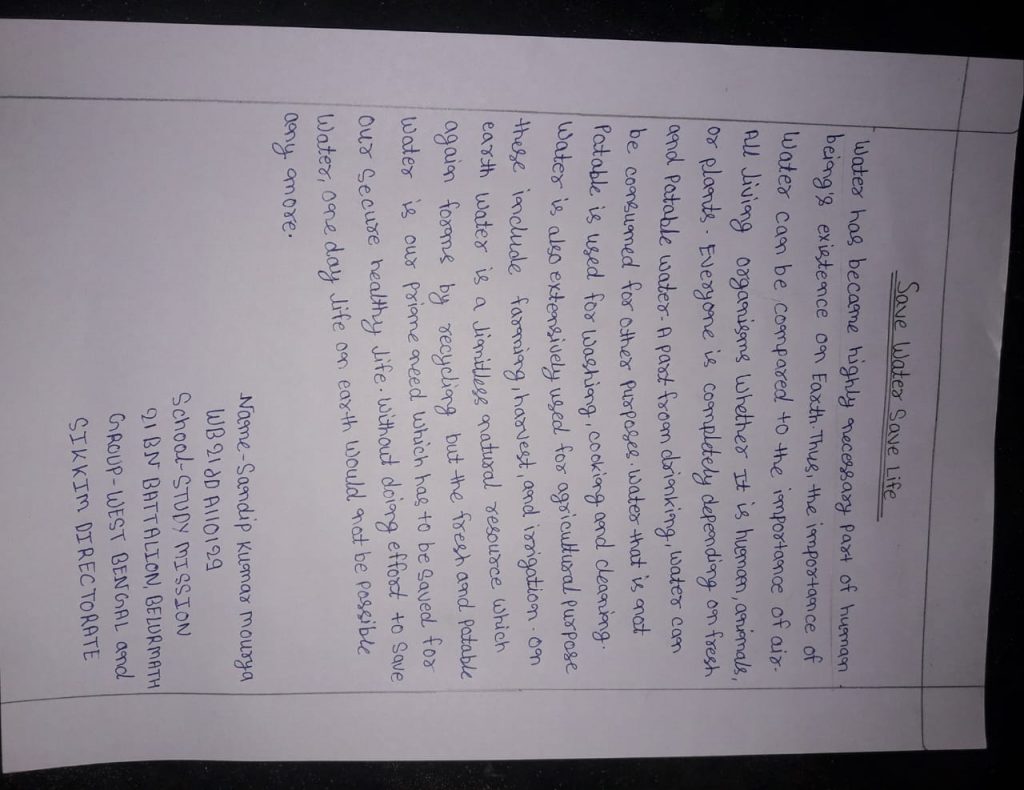 Save Water Save Life
Water has became highly necessary part of human
being's existence on Earth. Thus, the importance of
Water can be compared to the importance of air.
All living organisms whether It is human, animals,
or plants. Everyone is completely depending on fresh
and Patable water. Apart from drinking, water can
be consumed for other purposes. Water that is not
Patable is used for washing, cooking and cleaning.
Water is also extensively used for agricultural purpose
these include farming, harvest, and irrigation. On
earth water is a limitless natural resource which
again forms by recycling but the fresh and Patable
water is our prime need which has to be saved for
our secure healthy life. Without doing effort to save
Water, one day life on earth would not be possible
any more.
Name-Sandip Kumar Mourya
WB21JDA110129
School-STUDY MISSION
21 BN BATTALION, BELURMATH
GROUP-WEST BENGAL and
SIKKIM DIRECTORATE